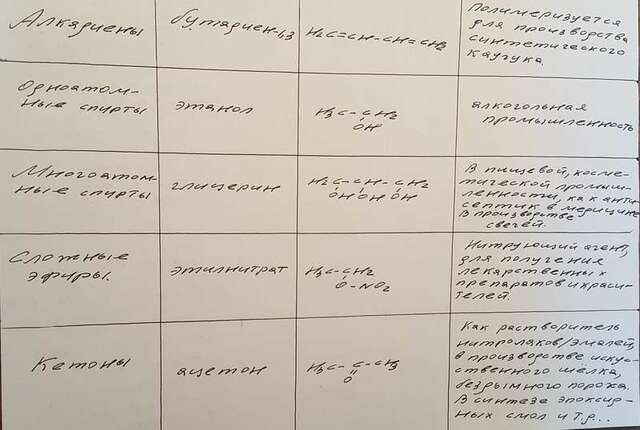 Алкадиены
бутадиен-1,3
H₂C=CH-CH=CH₂
Полимеризуется
для производства
синтетического
каучука
Одноатом-
ные спирты
этанол
H₃C-CH₂
OH
алкогольная
промышленность
Многоатом-
ные спирты
глицерин
H₂C-CH-CH₂
OH OH OH
В пищевой, косме-
тической промыш-
ленности, как анти-
септик в медицине
В производстве
свечей.
Сложные
эфиры.
этилнитрат
H₃C-CH₂
O-NO₂
Нитрующий агент,
для получения
лекарственных
препаратов и краси-
телей.
Кетоны
ацетон
H₃C-C-CH₃
O
Как растворитель
нитролаков/эмалей,
в производстве искус-
ственного шёлка,
бездымного пороха.
В синтезе эпоксид-
ных смол и т.д...